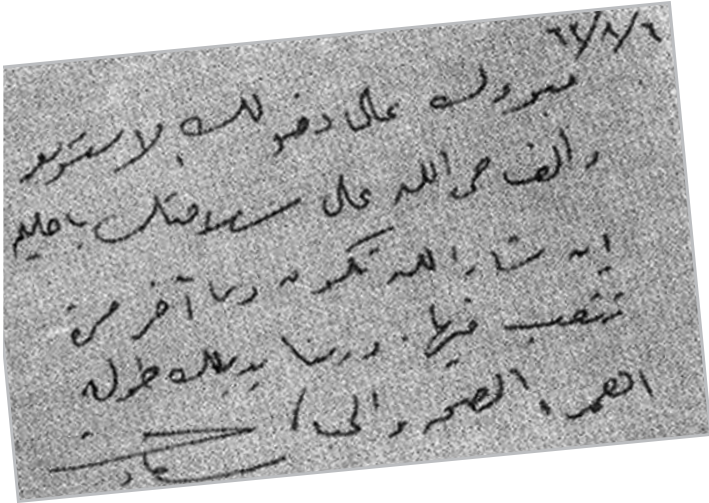 ٦٤/٨/٦
مبروك على دخولك الاستوديو
وألف حمد الله على سلامتك يا حليم
إن شاء الله تكون دي آخر مرة
تتعب فيها. وربنا يديلك طولة
العمر، الصحة والى